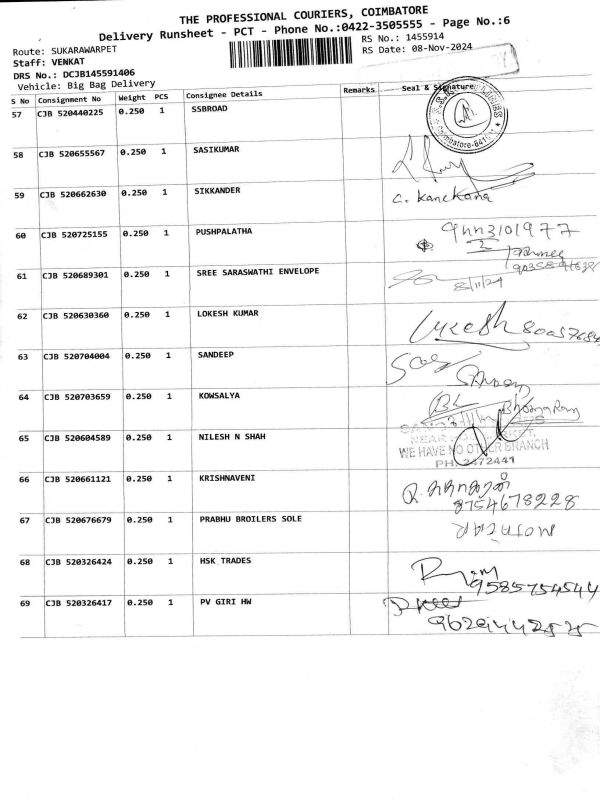 THE PROFESSIONAL COURIERS, COIMBATORE
Delivery Runsheet - PCT - Phone No.:0422-3505555 - Page No.:6
Route: SUKARAWARPET
RS No.: 1455914
Staff: VENKAT
RS Date: 08-Nov-2024
DRS No.: DCJB145591406
Vehicle: Big Bag Delivery
S No Consignment No Weight PCS Consignee Details Remarks Seal & Signature
57 CJB 520440225 0.250 1 SSBROAD
58 CJB 520655567 0.250 1 SASIKUMAR
59 CJB 520662630 0.250 1 SIKKANDER C. Kanchana
60 CJB 520725155 0.250 1 PUSHPALATHA
61 CJB 520689301 0.250 1 SREE SARASWATHI ENVELOPE 8/11/24
62 CJB 520630360 0.250 1 LOKESH KUMAR Lokesh
63 CJB 520704004 0.250 1 SANDEEP
64 CJB 520703659 0.250 1 KOWSALYA
65 CJB 520604589 0.250 1 NILESH N SHAH
WE HAVE NO OTHER BRANCH
PH: 2472441
66 CJB 520661121 0.250 1 KRISHNAVENI
8754678228
67 CJB 520676679 0.250 1 PRABHU BROILERS SOLE
68 CJB 520326424 0.250 1 HSK TRADES
9585754544
69 CJB 520326417 0.250 1 PV GIRI HW